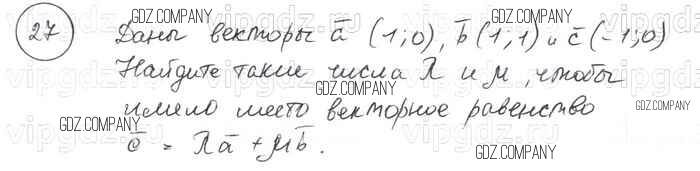 27 Даны векторы a̅ (1;0), b̅ (1;1) и c̅ (-1;0)
Найдите такие числа λ и μ, чтобы
имело место векторное равенство
c̅ = λa̅ + μb̅.
GDZ.COMPANY
GDZ.COMPANY
GDZ.COMPANY
GDZ.COMPANY
GDZ.COMPANY
GDZ.COMPANY
GDZ.COMPANY